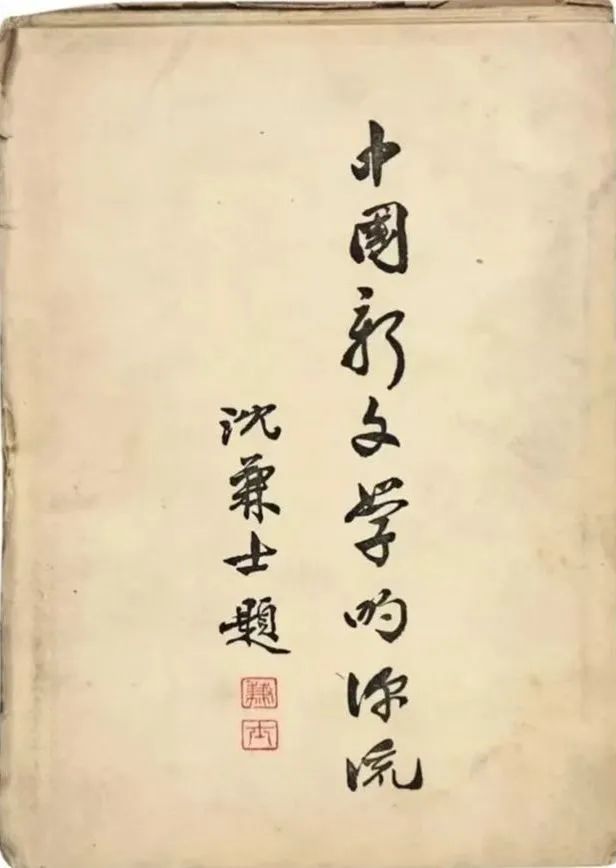 中國新文学的源流
沈兼士題
兼
士